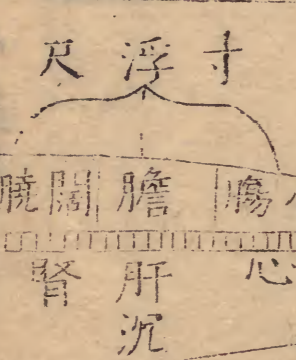 寸 浮 尺
腸 膽 闊
心 肝 腎
沉